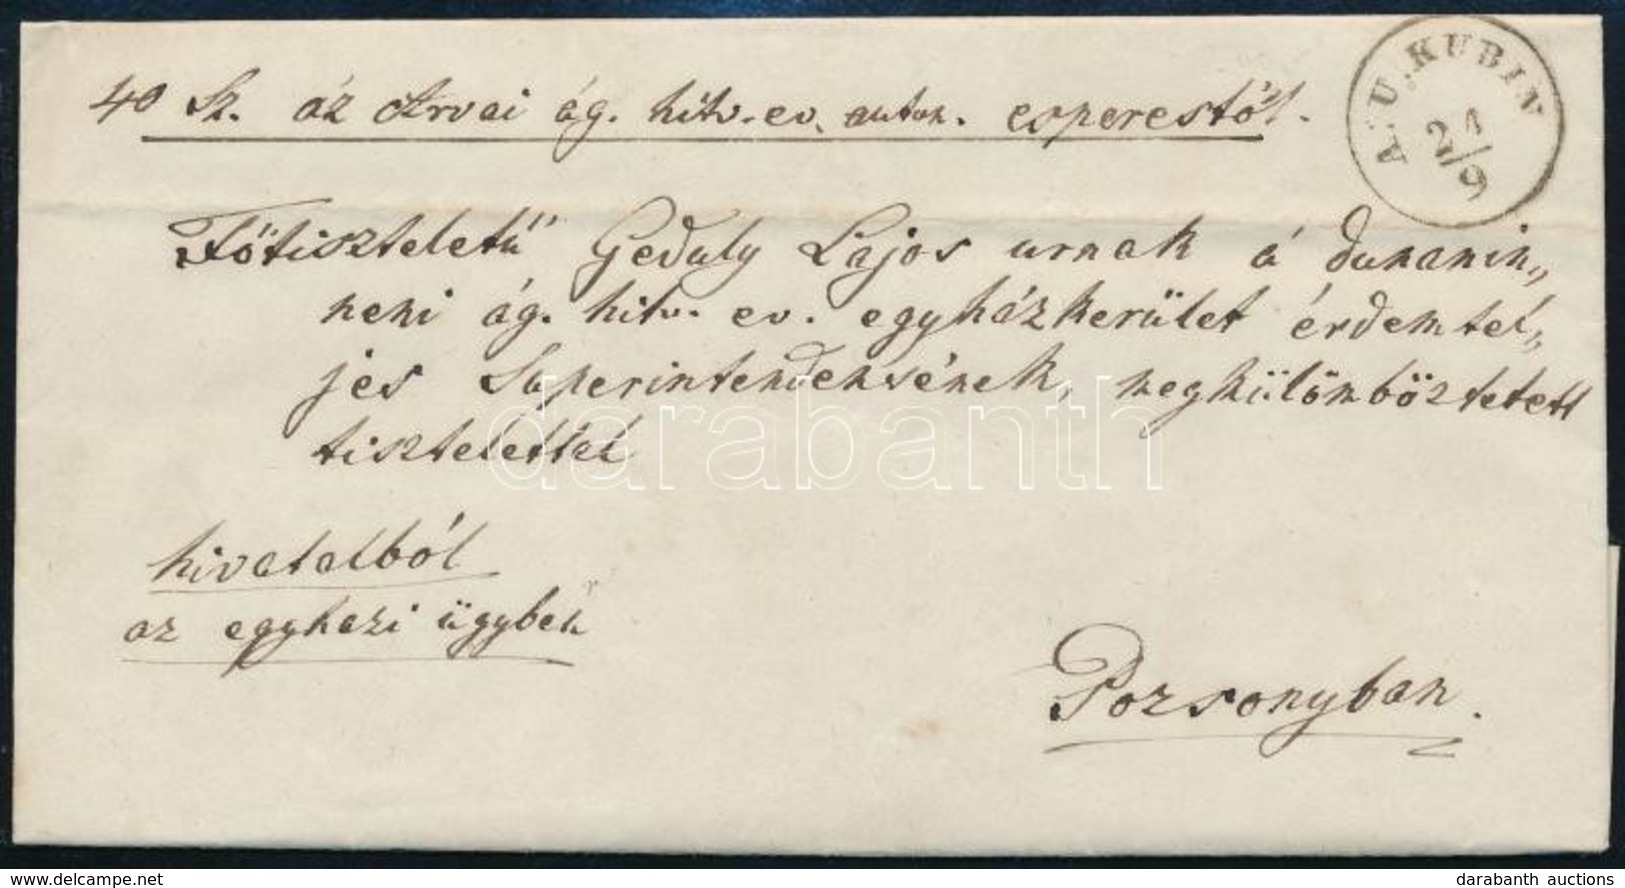 40 Sz. áz Arvai ág. hitv. ev. auton. esperestől.
A:U.KUBIN
24/9
Főtiszteletű Geduly Lajos urnak á dunanin„
neni ág. hitv. ev. egyházkerület érdemtel„
jes Superintendensének, megkülömböztetett
tisztelettel
hivatalból
az egyhazi ügyben
Pozsonyban.
darabanth
darabanth auctions